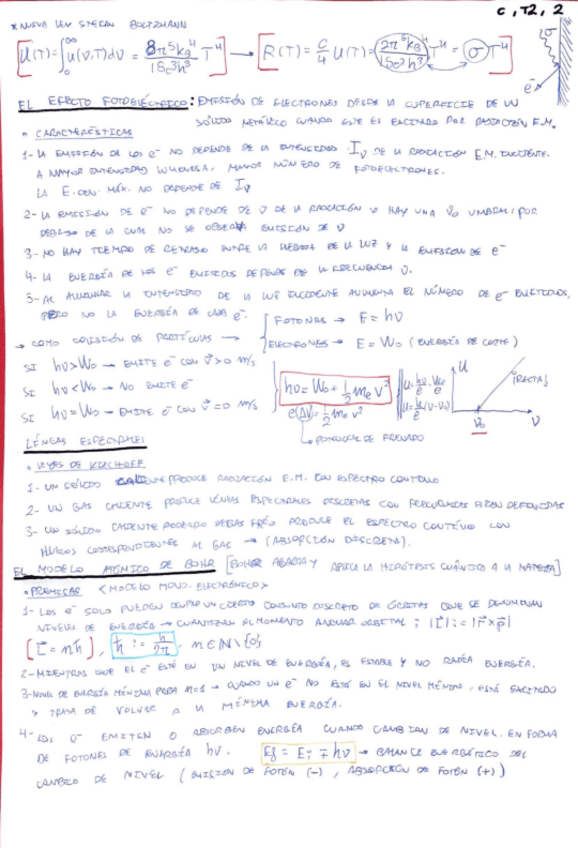 C, T2, 2
* NUEVA LEY STEFAN BOLTZMANN
[U(T)=∫₀^∞ u(ν,T)dν = 8π⁵k_B⁴/15c³h³ T⁴] → [R(T) = c/4 U(T) = (2π⁵k_B⁴/15c²h³) T⁴ = σT⁴]
e⁻
EL EFECTO FOTOELÉCTRICO: EMISIÓN DE ELECTRONES DESDE LA SUPERFICIE DE UN
SÓLIDO METÁLICO CUANDO ESTE ES EXCITADO POR RADIACIÓN E.M.
• CARACTERÍSTICAS
1- LA EMISIÓN DE LOS e⁻ NO DEPENDE DE LA INTENSIDAD I_ν DE LA RADIACIÓN E.M. INCIDENTE.
A MAYOR INTENSIDAD LUMINOSA, MAYOR NÚMERO DE FOTOELECTRONES.
LA E. CIN. MÁX. NO DEPENDE DE I_ν
2- LA EMISIÓN DE e⁻ NO DEPENDE DE ν DE LA RADIACIÓN HAY UNA ν₀ UMBRAL: POR
DEBAJO DE LA CUAL NO SE OBSERVA EMISIÓN DE ν
3- NO HAY TIEMPO DE RETRASO ENTRE LA LLEGADA DE LA LUZ Y LA EMISIÓN DE e⁻
4- LA ENERGÍA DE LOS e⁻ EMITIDOS DEPENDE DE LA FRECUENCIA ν.
5- AL AUMENTAR LA INTENSIDAD DE LA LUZ INCIDENTE AUMENTA EL NÚMERO DE e⁻ EMITIDOS,
PERO NO LA ENERGÍA DE CADA e⁻.
→ COMO COLISIÓN DE PARTÍCULAS → { FOTONES → E = hν
ELECTRONES → E = W₀ (ENERGÍA DE CORTE)
SI hν > W₀ → EMITE e⁻ CON v⃗ > 0 m/s
SI hν < W₀ → NO EMITE e⁻
SI hν = W₀ → EMITE e⁻ CON v⃗ = 0 m/s
hν = W₀ + ½ m_e v²
e(ΔV) = ½ m_e v²
→ POTENCIAL DE FRENADO
U = hν/e - W₀/e
U = h/e (ν-ν₀)
U
(RECTA)
ν₀
ν
LÍNEAS ESPECTRALES
• LEYES DE KIRCHOFF
1- UN SÓLIDO CALIENTE PRODUCE RADIACIÓN E.M. CON ESPECTRO CONTINUO
2- UN GAS CALIENTE PRODUCE LÍNEAS ESPECTRALES DISCRETAS CON FRECUENCIAS BIEN DEFINIDAS
3- UN SÓLIDO CALIENTE RODEADO DE GAS FRÍO PRODUCE EL ESPECTRO CONTINUO CON
HUECOS CORRESPONDIENTES AL GAS → (ABSORCIÓN DISCRETA).
EL MODELO ATÓMICO DE BOHR [BOHR APLICA LA HIPÓTESIS CUÁNTICA A LA MATERIA]
• PREMISAS <MODELO MONO-ELECTRÓNICO>
1- LOS e⁻ SOLO PUEDEN OCUPAR UN CIERTO CONJUNTO DISCRETO DE ÓRBITAS QUE SE DENOMINAN
NIVELES DE ENERGÍA → CUANTIZAN EL MOMENTO ANGULAR ORBITAL; |L⃗| = |r⃗×p⃗|
[L⃗ = nħ], ħ := h/2π, n∈ℕ\{0}
2- MIENTRAS QUE EL e⁻ ESTÉ EN UN NIVEL DE ENERGÍA, ES ESTABLE Y NO RADÍA ENERGÍA.
3- NIVEL DE ENERGÍA MÍNIMA PARA n=1 → CUANDO UN e⁻ NO ESTÁ EN EL NIVEL MÍNIMO, ESTÁ EXCITADO
Y TRATA DE VOLVER A LA MÍNIMA ENERGÍA.
4- LOS e⁻ EMITEN O ABSORBEN ENERGÍA CUANDO CAMBIAN DE NIVEL. EN FORMA
DE FOTONES DE ENERGÍA hν. E_f = E_i ∓ hν → BALANCE ENERGÉTICO DEL
CAMBIO DE NIVEL (EMISIÓN DE FOTÓN (-), ABSORCIÓN DE FOTÓN (+))